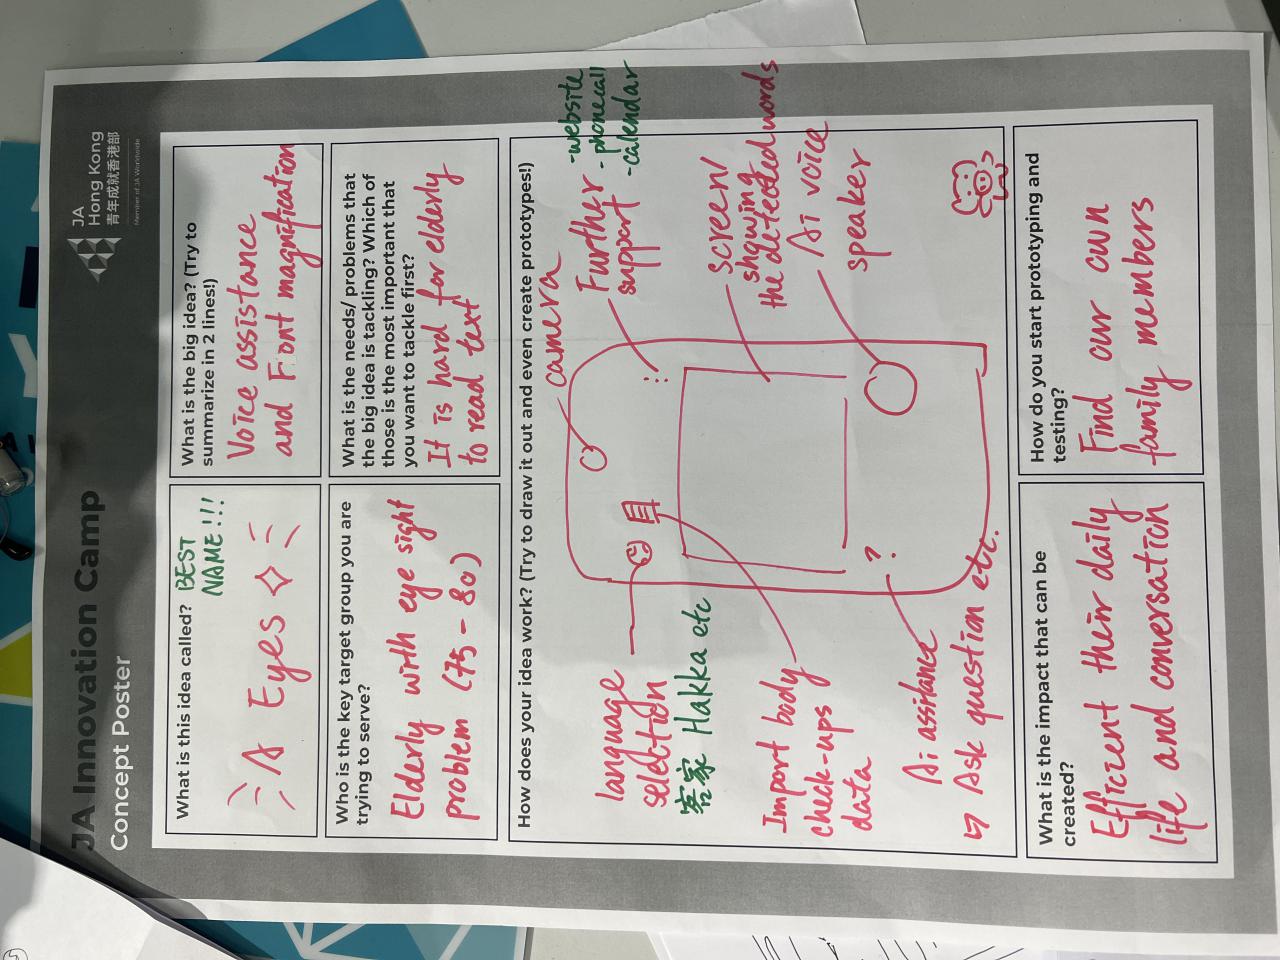 JA Innovation Camp
Concept Poster
JA
Hong Kong
青年成就香港部
Member of JA Worldwide
What is this idea called?
BEST
NAME!!!
A Eyes
What is the big idea? (Try to
summarize in 2 lines!)
Voice assistance
and Font magnification
Who is the key target group you are
trying to serve?
Elderly with eye sight
problem (75 - 80)
What is the needs/ problems that
the big idea is tackling? Which of
those is the most important that
you want to tackle first?
It is hard for elderly
to read text
How does your idea work? (Try to draw it out and even create prototypes!)
camera
Further
support
-website
-phonecall
-calendar
language
selection
客家 Hakka etc
screen/
showing
the detected words
Import body
check-ups
data
Ai voice
speaker
?
Ai assitance
↳ Ask question etc.
What is the impact that can be
created?
Efficient their daily
life and conversation
How do you start prototyping and
testing?
Find our own
family members